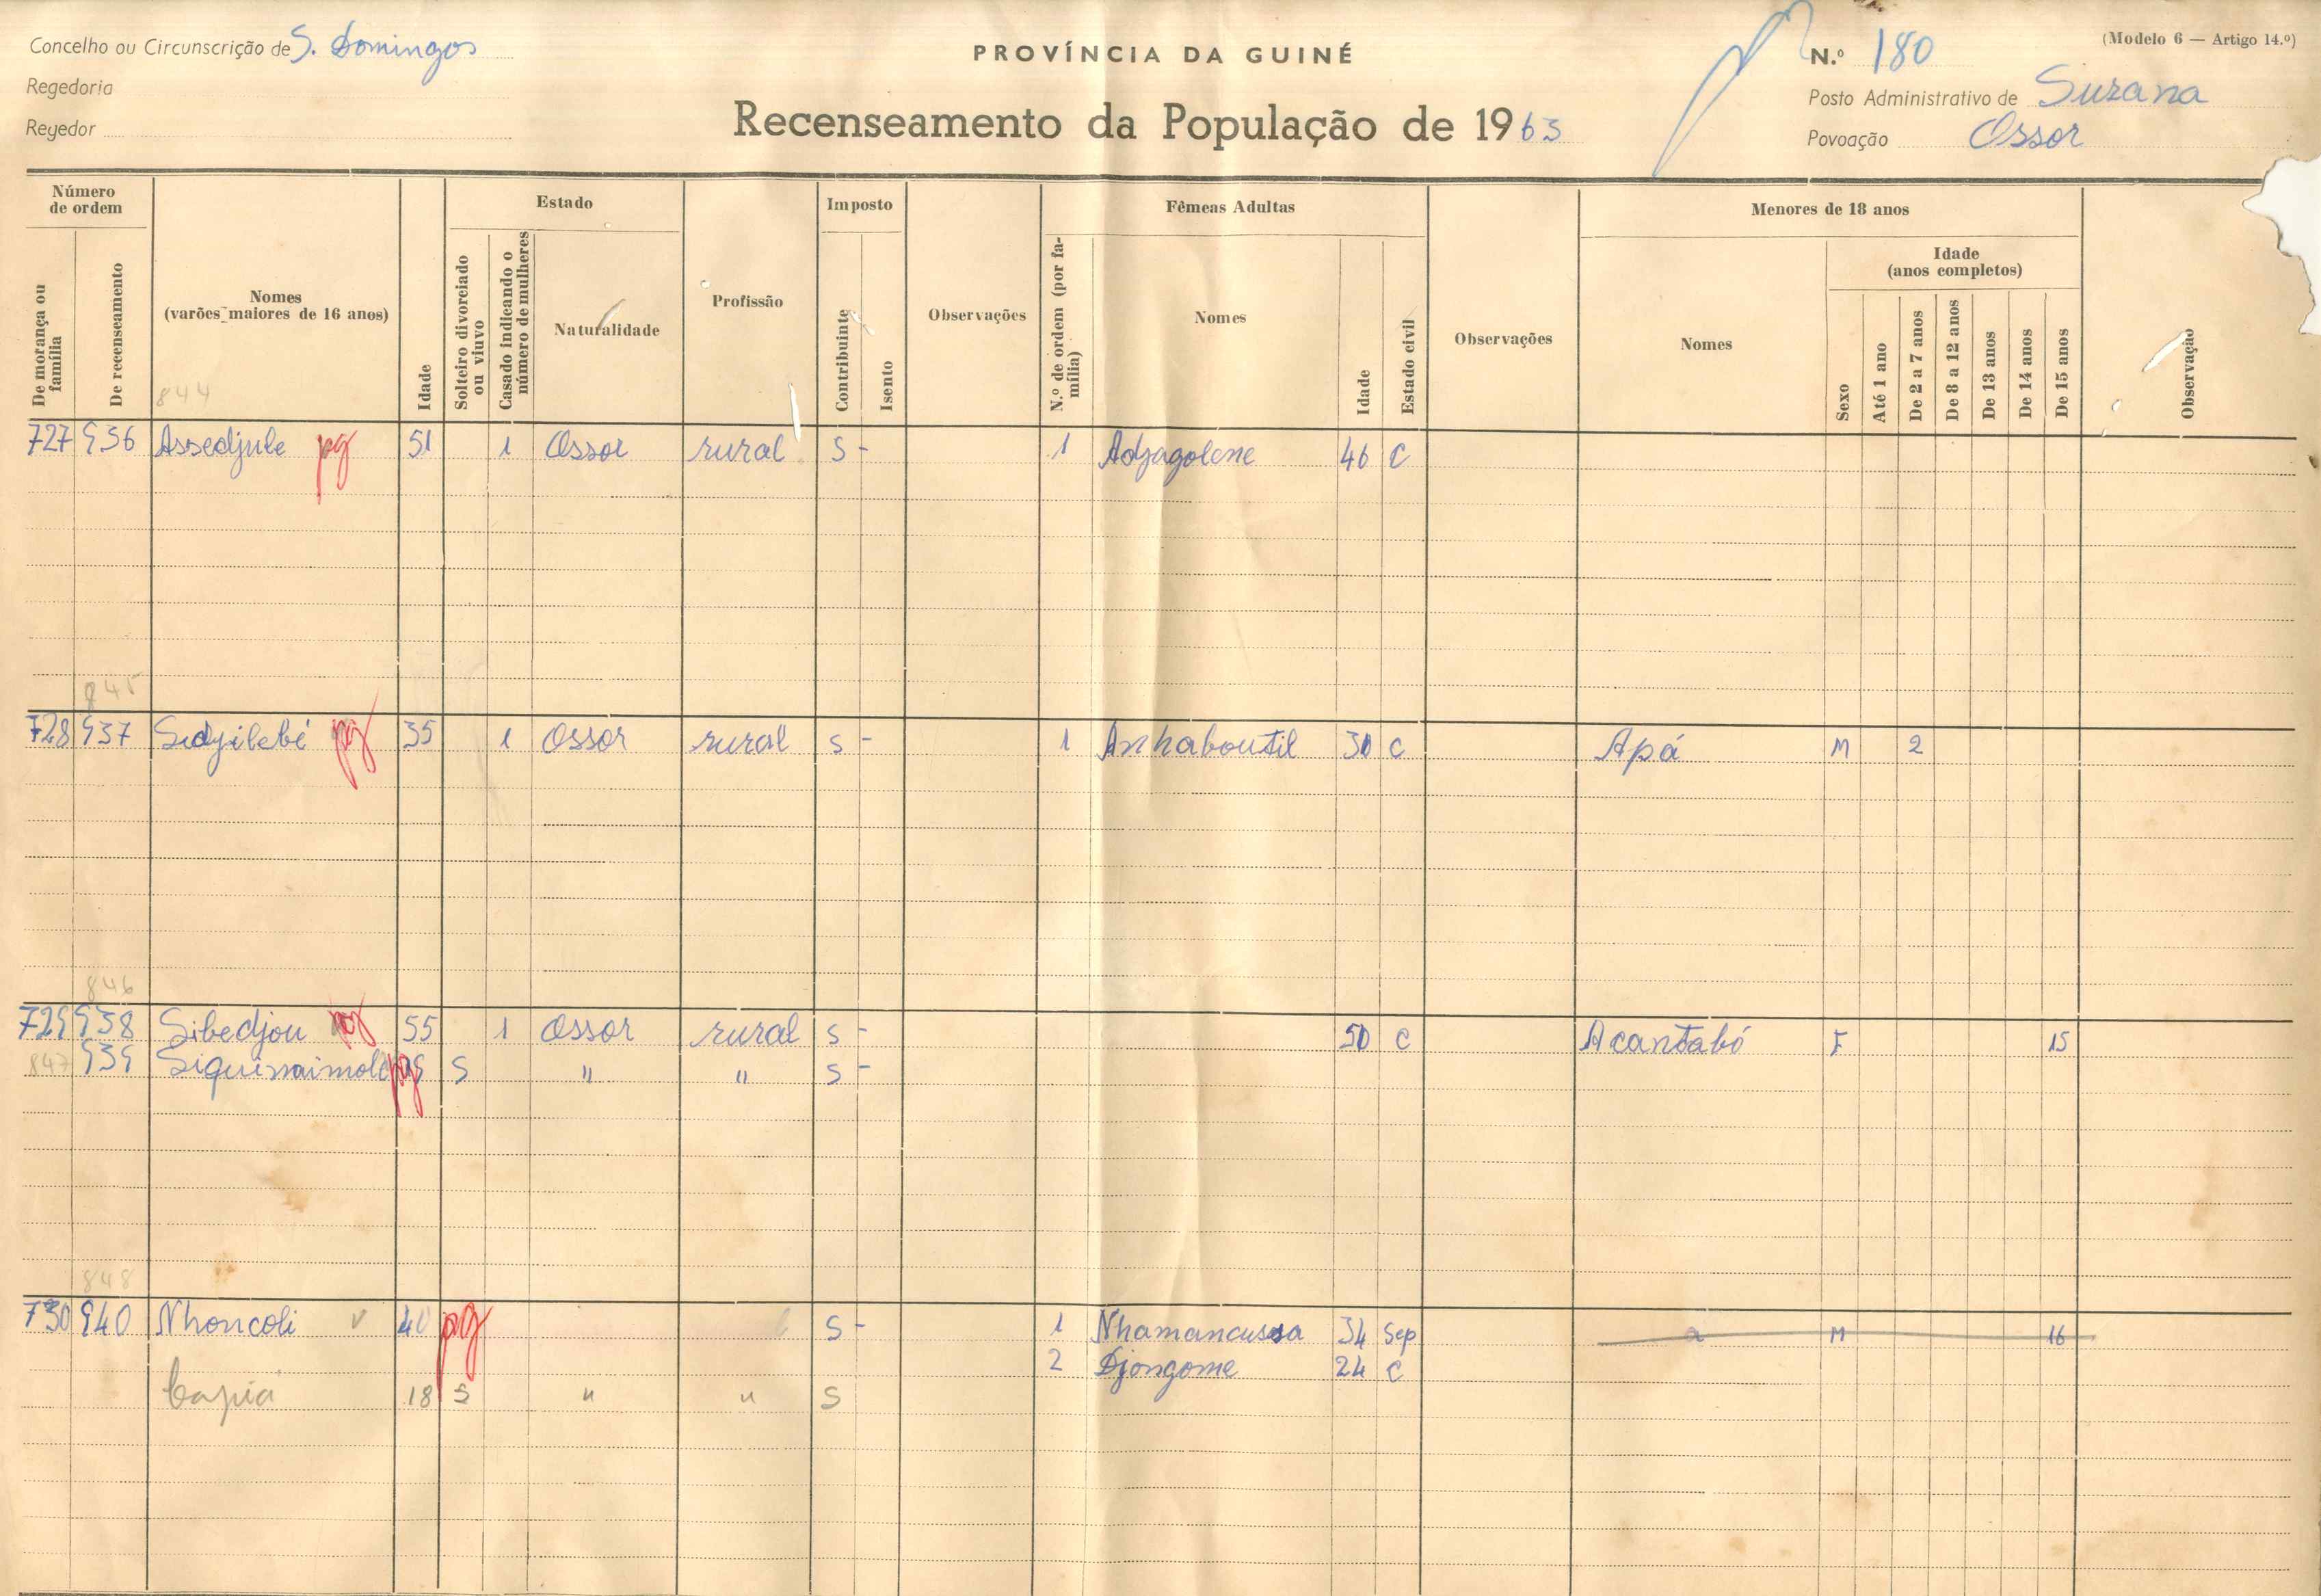 Concelho ou Circunscrição de S. Domingos
Regedoria
Regedor
PROVÍNCIA DA GUINÉ
Recenseamento da População de 1963
(Modelo 6 — Artigo 14.º)
N.º 180
Posto Administrativo de Suzana
Povoação Ossor
Número de ordem
De morança ou família
De recenseamento
Nomes
(varões maiores de 16 anos)
Idade
Estado
Solteiro divorciado ou viuvo
Casado indicando o número de mulheres
Naturalidade
Profissão
Imposto
Contribuinte
Isento
Observações
Fêmeas Adultas
N.º de ordem (por família)
Nomes
Idade
Estado civil
Observações
Menores de 18 anos
Nomes
Idade
(anos completos)
Sexo
Até 1 ano
De 2 a 7 anos
De 8 a 12 anos
De 13 anos
De 14 anos
De 15 anos
Observação
844
727 936 Assedjule pg 51 1 Ossor rural S - 1 Adjagolene 46 C
845
728 937 Sidjilebé pg 35 1 Ossor rural S - 1 Anhaboutil 30 C Apá M 2
846
729 938 Sibedjou pg 55 1 Ossor rural S - 50 C Acantabó F 15
847 939 Siquinaimolé pg S " " S -
848
730 940 Nhoncoli v 40 pg S - 1 Nhamancussa 34 Sep M 16
2 Djongome 24 C
18 S " " S